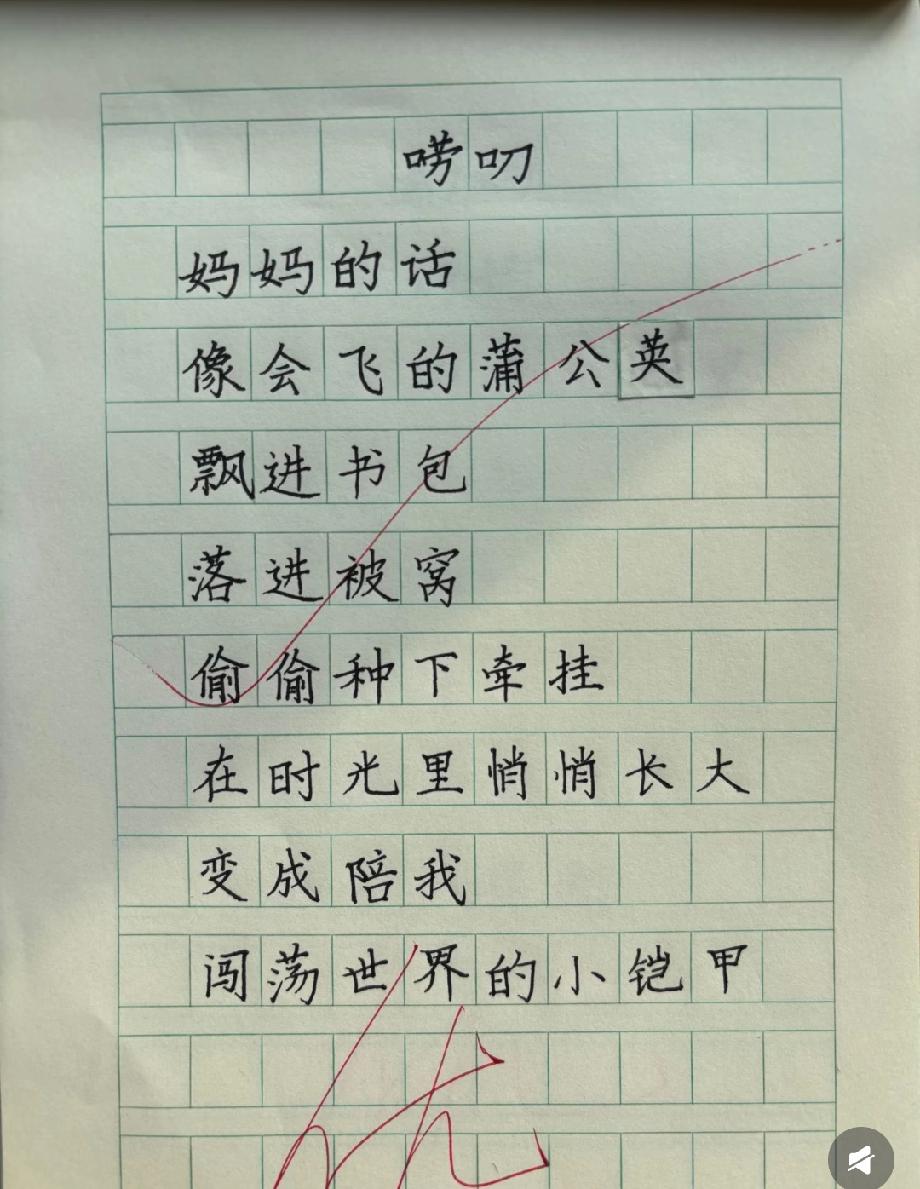 唠叨
妈妈的话
像会飞的蒲公英
飘进书包
落进被窝
偷偷种下牵挂
在时光里悄悄长大
变成陪我
闯荡世界的小铠甲
优